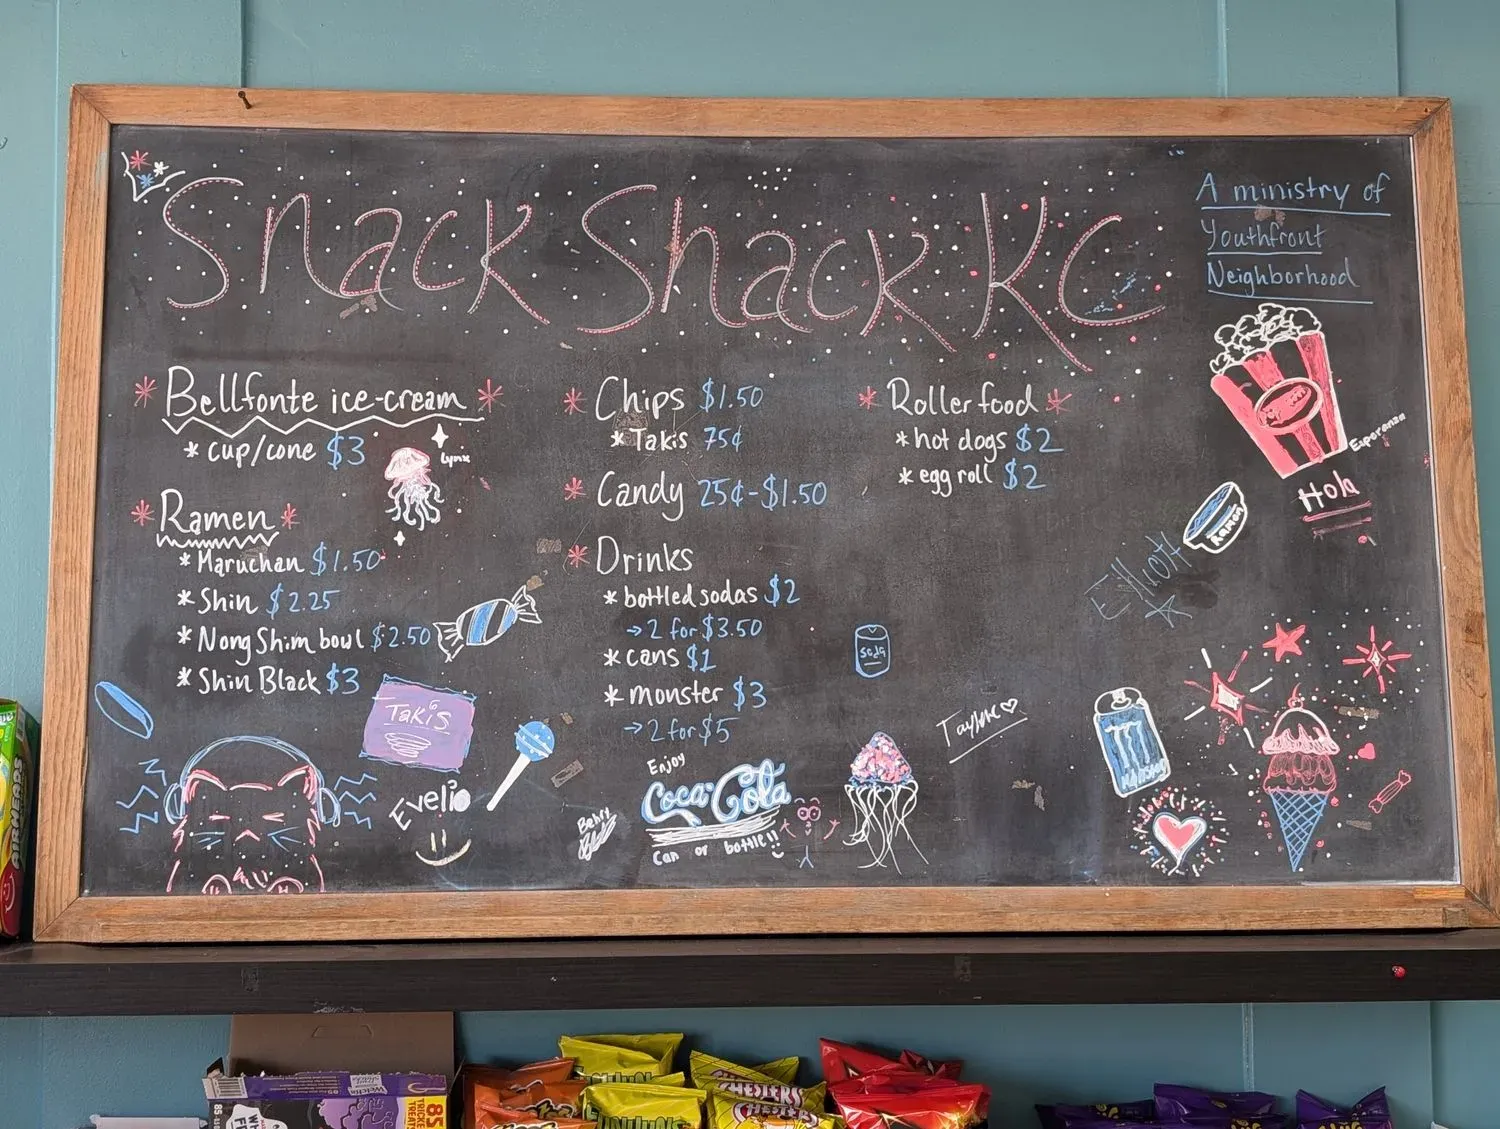 Snack Shack KC
A ministry of
Youthfront
Neighborhood
* Bellfonte ice-cream *
* cup/cone $3
Lynx
* Ramen *
* Maruchan $1.50
* Shin $2.25
* Nong Shim bowl $2.50
* Shin Black $3
* Chips $1.50
* Takis 75¢
* Candy 25¢-$1.50
* Drinks
* bottled sodas $2
→ 2 for $3.50
* cans $1
* monster $3
→ 2 for $5
* Roller food *
* hot dogs $2
* egg roll $2
Esperanza
Hola
Ramon
Elliott
soda
Takis
Evelio
Enjoy
Coca-Cola
Can or bottle!!
AIRHEADS
Welch's
85
FUNYUNS
CHESTER'S
CHESTER'S